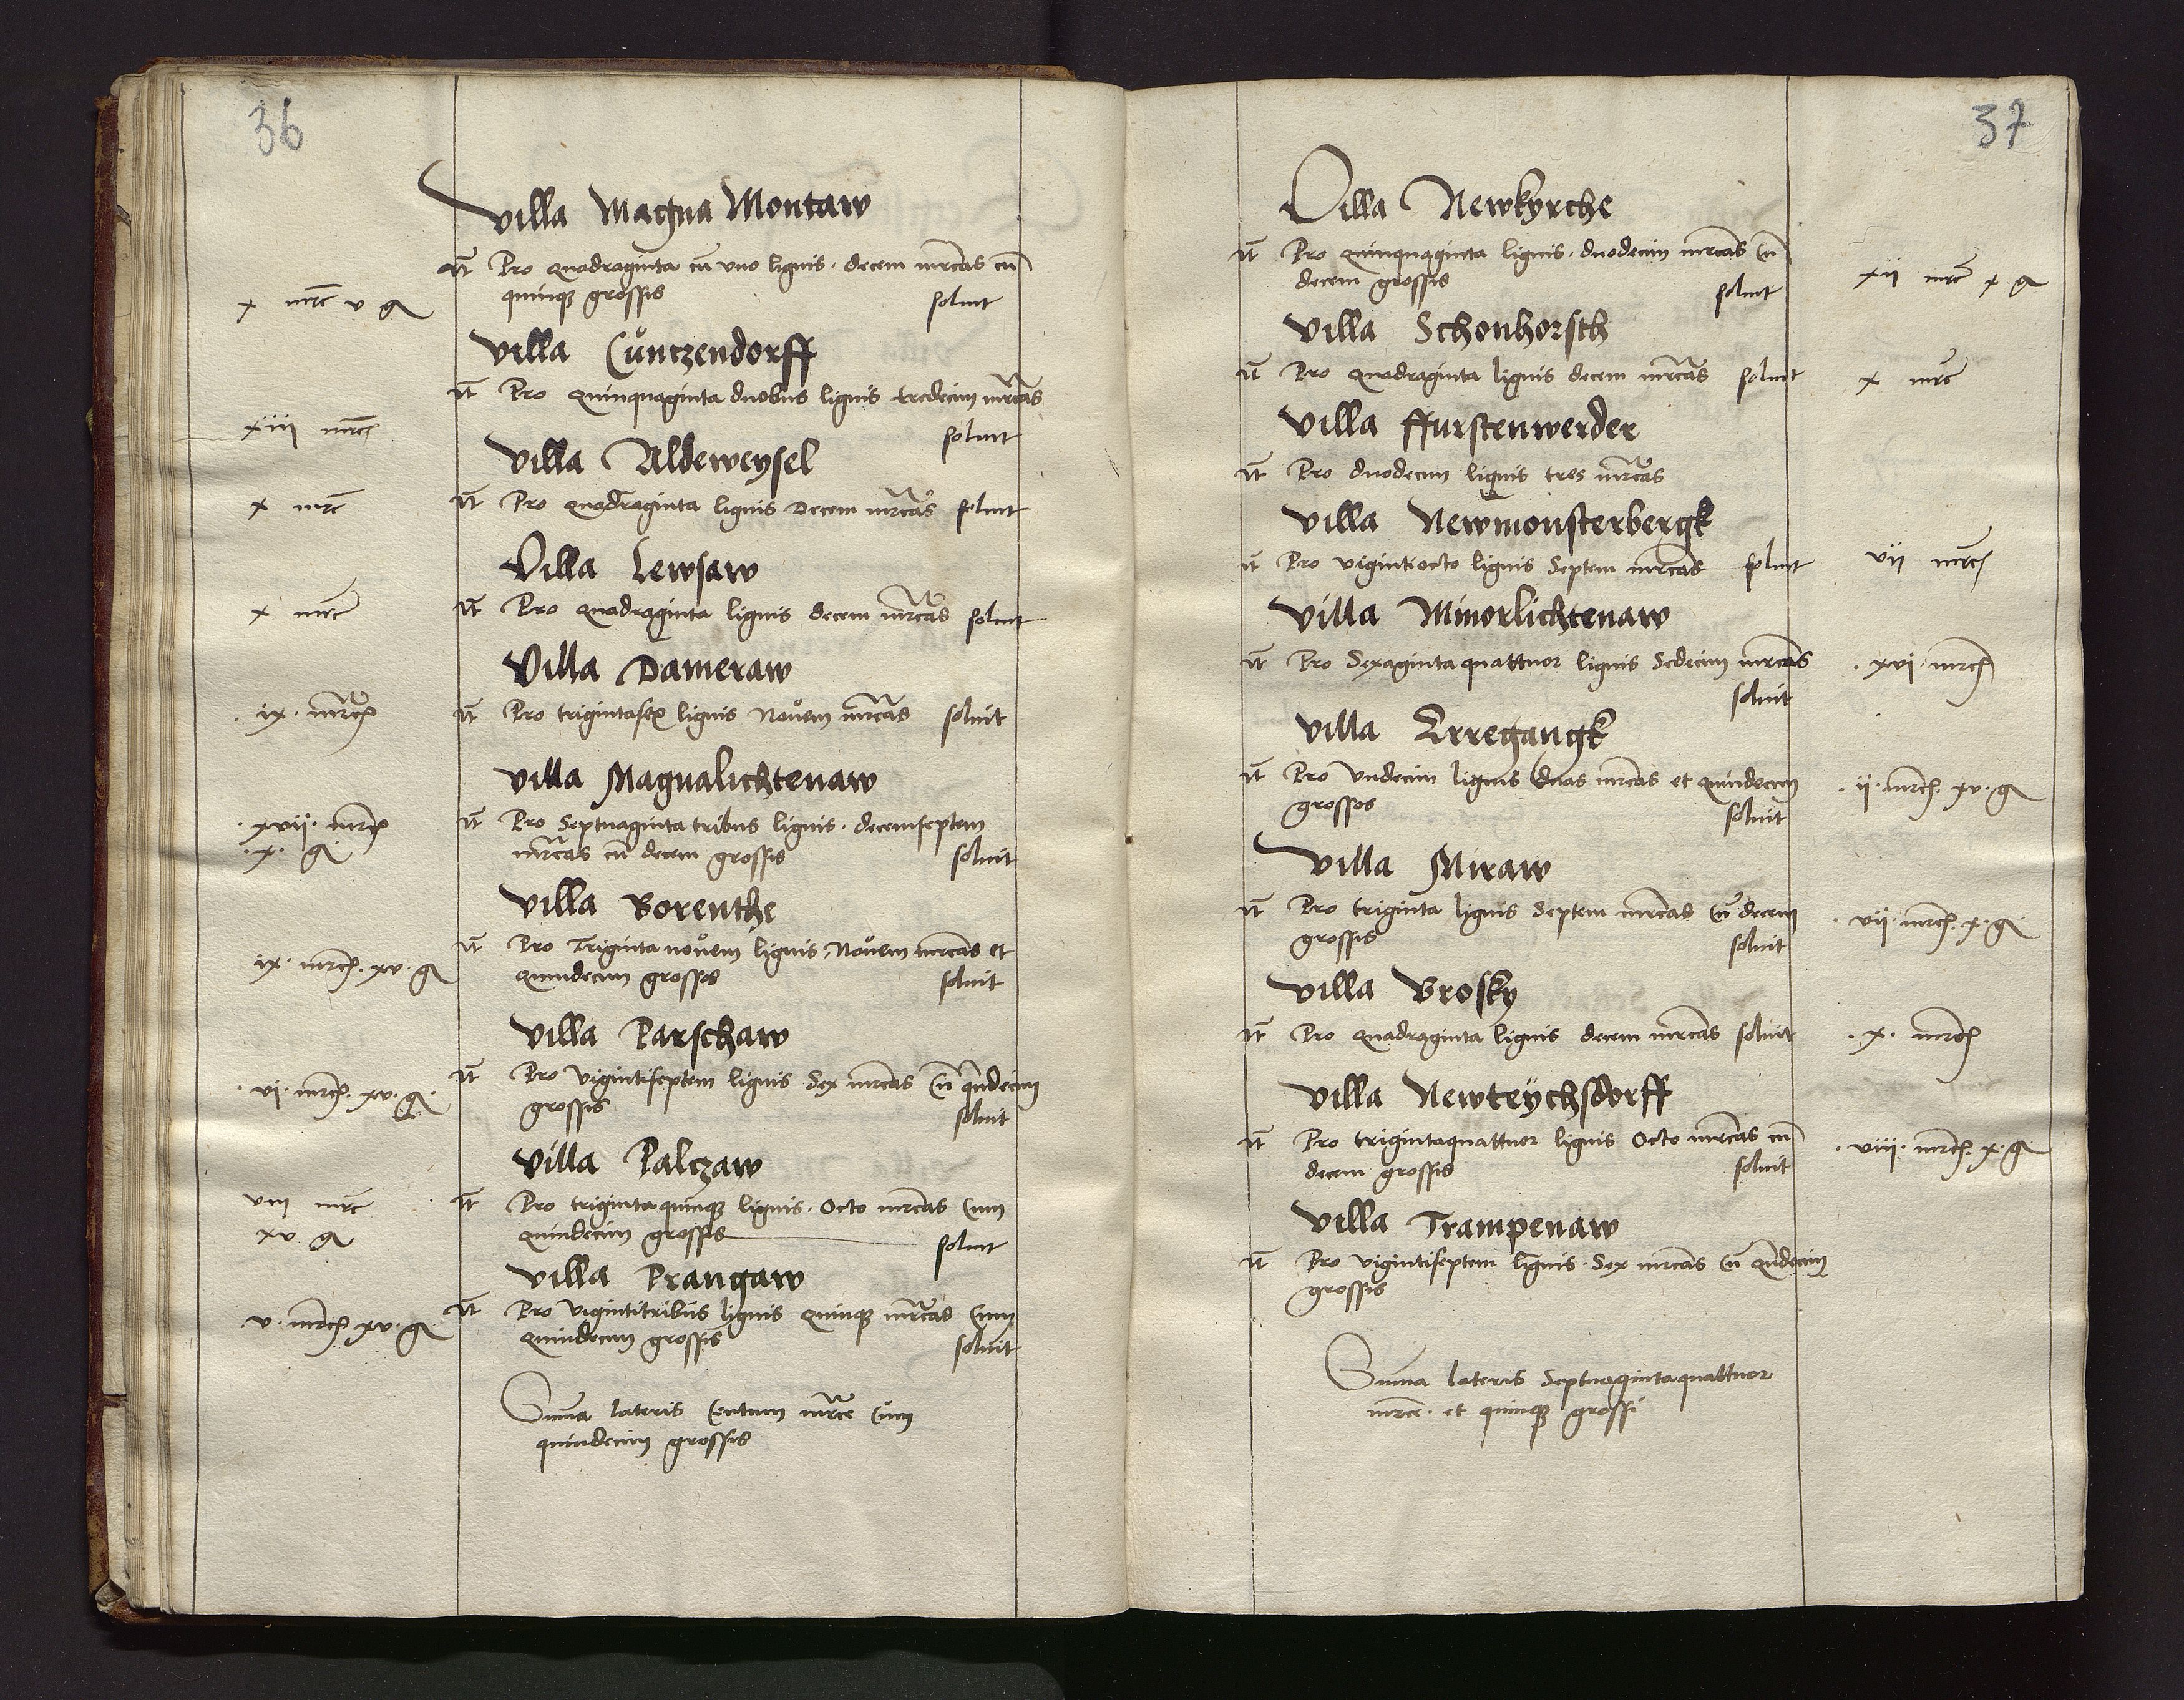 36
Villa Magna Montaw
Nt Pro quadraginta cu vno lignis decem mrcas cu
x mrc v g quinq grossis soluit
Villa Cuntzendorff
Nt Pro quinquaginta duobus lignis tredecim mrcas
xiii mrc soluit
Villa Aldeweysel
x mrc Nt Pro quadraginta lignis Decem mrcas soluit
Villa Lewsaw
x mrc Nt Pro quadraginta lignis decem mrcas soluit
Villa Dameraw
ix mrc Nt Pro trigintasex lignis Nouem mrcas soluit
Villa Magnalichtenaw
xvii mrc Nt Pro Septuaginta tribus lignis decemseptem
x g mrcas cu decem grossis soluit
Villa Borenthe
ix mrc xv g Nt Pro Triginta nouem lignis Nouem mrcas et
quindecim grossos soluit
Villa Parschaw
vi mrc xv g Nt Pro Vigintiseptem lignis Sex mrcas Cu qndecim
grossis soluit
Villa Palczaw
viii mrc Nt Pro trigintaquinq lignis Octo mrcas Cum
xv g quindecim grossis soluit
Villa Prangaw
v mrc xv g Nt Pro Vigintitribus lignis quinq mrcas Cum
quindecim grossis soluit
Suma lateris Centum mrce Cum
quindecim grossis
37
Villa Newkyrche
Nt Pro quinquaginta lignis duodecim mrcas Cu
decem grossis soluit xii mrc x g
Villa Schonhorsth
Nt Pro quadraginta lignis decem mrcas soluit x mrc
Villa ffurstenwerder
Nt Pro duodecim lignis tres mrcas
Villa Newmonsterbergk
Nt Pro vigintiocto lignis Septem mrcas soluit vii mrc
Villa Minorlichtenaw
Nt Pro Sexaginta quattuor lignis Sedecim mrcas xvi mrc
soluit
Villa Erregangk
Nt Pro Vndecim lignis Duas mrcas et quindecim ii mrc xv g
grossos soluit
Villa Miraw
Nt Pro triginta lignis Septem mrcas Cu decem vii mrc x g
grossis soluit
Villa Brosky
Nt Pro quadraginta lignis decem mrcas soluit x mrc
Villa Newteÿchsdorff
Nt Pro trigintaquattuor lignis Octo mrcas cu viii mrc x g
decem grossis soluit
Villa Trampenaw
Nt Pro Vigintiseptem lignis Sex mrcas Cu qndecim
grossis
Suma lateris Septuagintaquattuor
mrce et quinq grossi